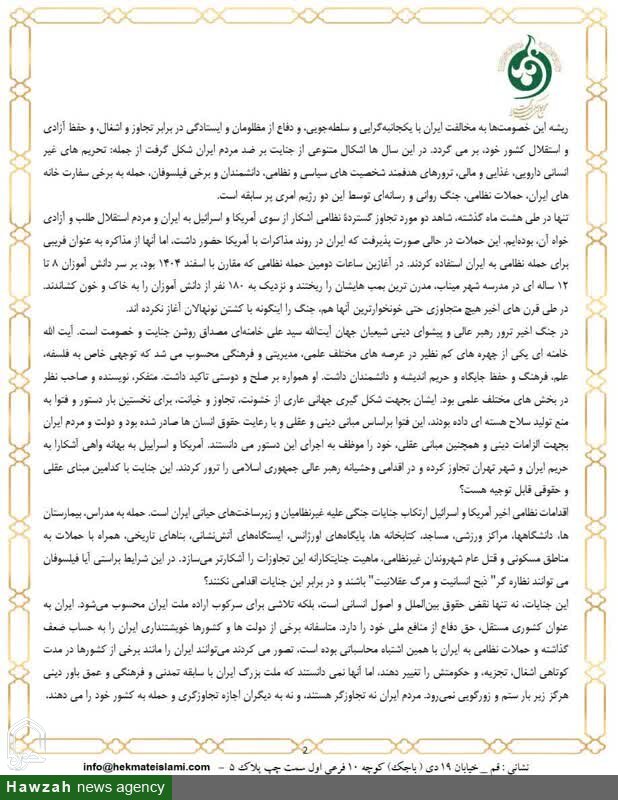 ریشه این خصومت‌ها به مخالفت ایران با یکجانبه‌گرایی و سلطه‌جویی، و دفاع از مظلومان و ایستادگی در برابر تجاوز و اشغال، و حفظ آزادی
و استقلال کشور خود، بر می گردد. در این سال ها اشکال متنوعی از جنایت بر ضد مردم ایران شکل گرفت از جمله: تحریم های غیر
انسانی دارویی، غذایی و مالی، ترورهای هدفمند شخصیت های سیاسی و نظامی، دانشمندان و برخی فیلسوفان، حمله به برخی سفارت خانه
های ایران، حملات نظامی، جنگ روانی و رسانه‌ای توسط این دو رژیم امری پر سابقه است.
تنها در طی هشت ماه گذشته، شاهد دو مورد تجاوز گستردهٔ نظامی آشکار از سوی آمریکا و اسرائیل به ایران و مردم استقلال طلب و آزادی
خواه آن، بوده‌ایم. این حملات در حالی صورت پذیرفت که ایران در روند مذاکرات با آمریکا حضور داشت، اما آنها از مذاکره به عنوان فریبی
برای حمله نظامی به ایران استفاده کردند. در آغازین ساعات دومین حمله نظامی که مقارن با اسفند ۱۴۰۴ بود، بر سر دانش آموزان ۸ تا
۱۲ ساله ای در مدرسه شهر میناب، مدرن ترین بمب هایشان را ریختند و نزدیک به ۱۸۰ نفر از دانش آموزان را به خاک و خون کشاندند.
در طی قرن های اخیر هیچ متجاوزی حتی خونخوارترین آنها هم، جنگ را اینگونه با کشتن نونهالان آغاز نکرده اند.
در جنگ اخیر ترور رهبر عالی و پیشوای دینی شیعیان جهان آیت‌الله سید علی خامنه‌ای مصداق روشن جنایت و خصومت است. آیت الله
خامنه ای یکی از چهره های کم نظیر در عرصه های مختلف علمی، مدیریتی و فرهنگی محسوب می شد که توجهی خاص به فلسفه،
علم، فرهنگ و حفظ جایگاه و حریم اندیشه و دانشمندان داشت. او همواره بر صلح و دوستی تاکید داشت. متفکر، نویسنده و صاحب نظر
در بخش های مختلف علمی بود. ایشان بجهت شکل گیری جهانی عاری از خشونت، تجاوز و خیانت، برای نخستین بار دستور و فتوا به
منع تولید سلاح هسته ای داده بودند، این فتوا براساس مبانی دینی و عقلی و با رعایت حقوق انسان ها صادر شده بود و دولت و مردم ایران
بجهت الزامات دینی و همچنین مبانی عقلی، خود را موظف به اجرای این دستور می دانستند. آمریکا و اسراییل به بهانه واهی آشکارا به
حریم ایران و شهر تهران تجاوز کرده و در اقدامی وحشیانه رهبر عالی جمهوری اسلامی را ترور کردند. این جنایت با کدامین مبنای عقلی
و حقوقی قابل توجیه هست؟
اقدامات نظامی اخیر آمریکا و اسرائیل ارتکاب جنایات جنگی علیه غیرنظامیان و زیرساخت‌های حیاتی ایران است. حمله به مدراس، بیمارستان
ها، دانشگاهها، مراکز ورزشی، مساجد، کتابخانه ها، پایگاه‌های اورژانس، ایستگاه‌های آتش‌نشانی، بناهای تاریخی، همراه با حملات به
مناطق مسکونی و قتل عام شهروندان غیرنظامی، ماهیت جنایتکارانه این تجاوزات را آشکارتر می‌سازد. در این شرایط براستی آیا فیلسوفان
می توانند نظاره گر" ذبح انسانیت و مرگ عقلانیت" باشند و در برابر این جنایات اقدامی نکنند؟
این جنایات، نه تنها نقض حقوق بین‌الملل و اصول انسانی است، بلکه تلاشی برای سرکوب اراده ملت ایران محسوب می‌شود. ایران به
عنوان کشوری مستقل، حق دفاع از منافع ملی خود را دارد. متاسفانه برخی از دولت ها و کشورها خویشتنداری ایران را به حساب ضعف
گذاشته و حملات نظامی به ایران با همین اشتباه محاسباتی بوده است، تصور می کردند می‌توانند ایران را مانند برخی از کشورها در مدت
کوتاهی اشغال، تجزیه، و حکومتش را تغییر دهند، اما آنها نمی دانستند که ملت بزرگ ایران با سابقه تمدنی و فرهنگی و عمق باور دینی
هرگز زیر بار ستم و زورگویی نمی‌رود. مردم ایران نه تجاوزگر هستند، و نه به دیگران اجازه تجاوزگری و حمله به کشور خود را می دهند.
2
نشانی : قم _خیابان ۱۹ دی ( باجک) کوچه ۱۰ فرعی اول سمت چپ پلاک ۵ – info@hekmateislami.com
Hawzah news agency